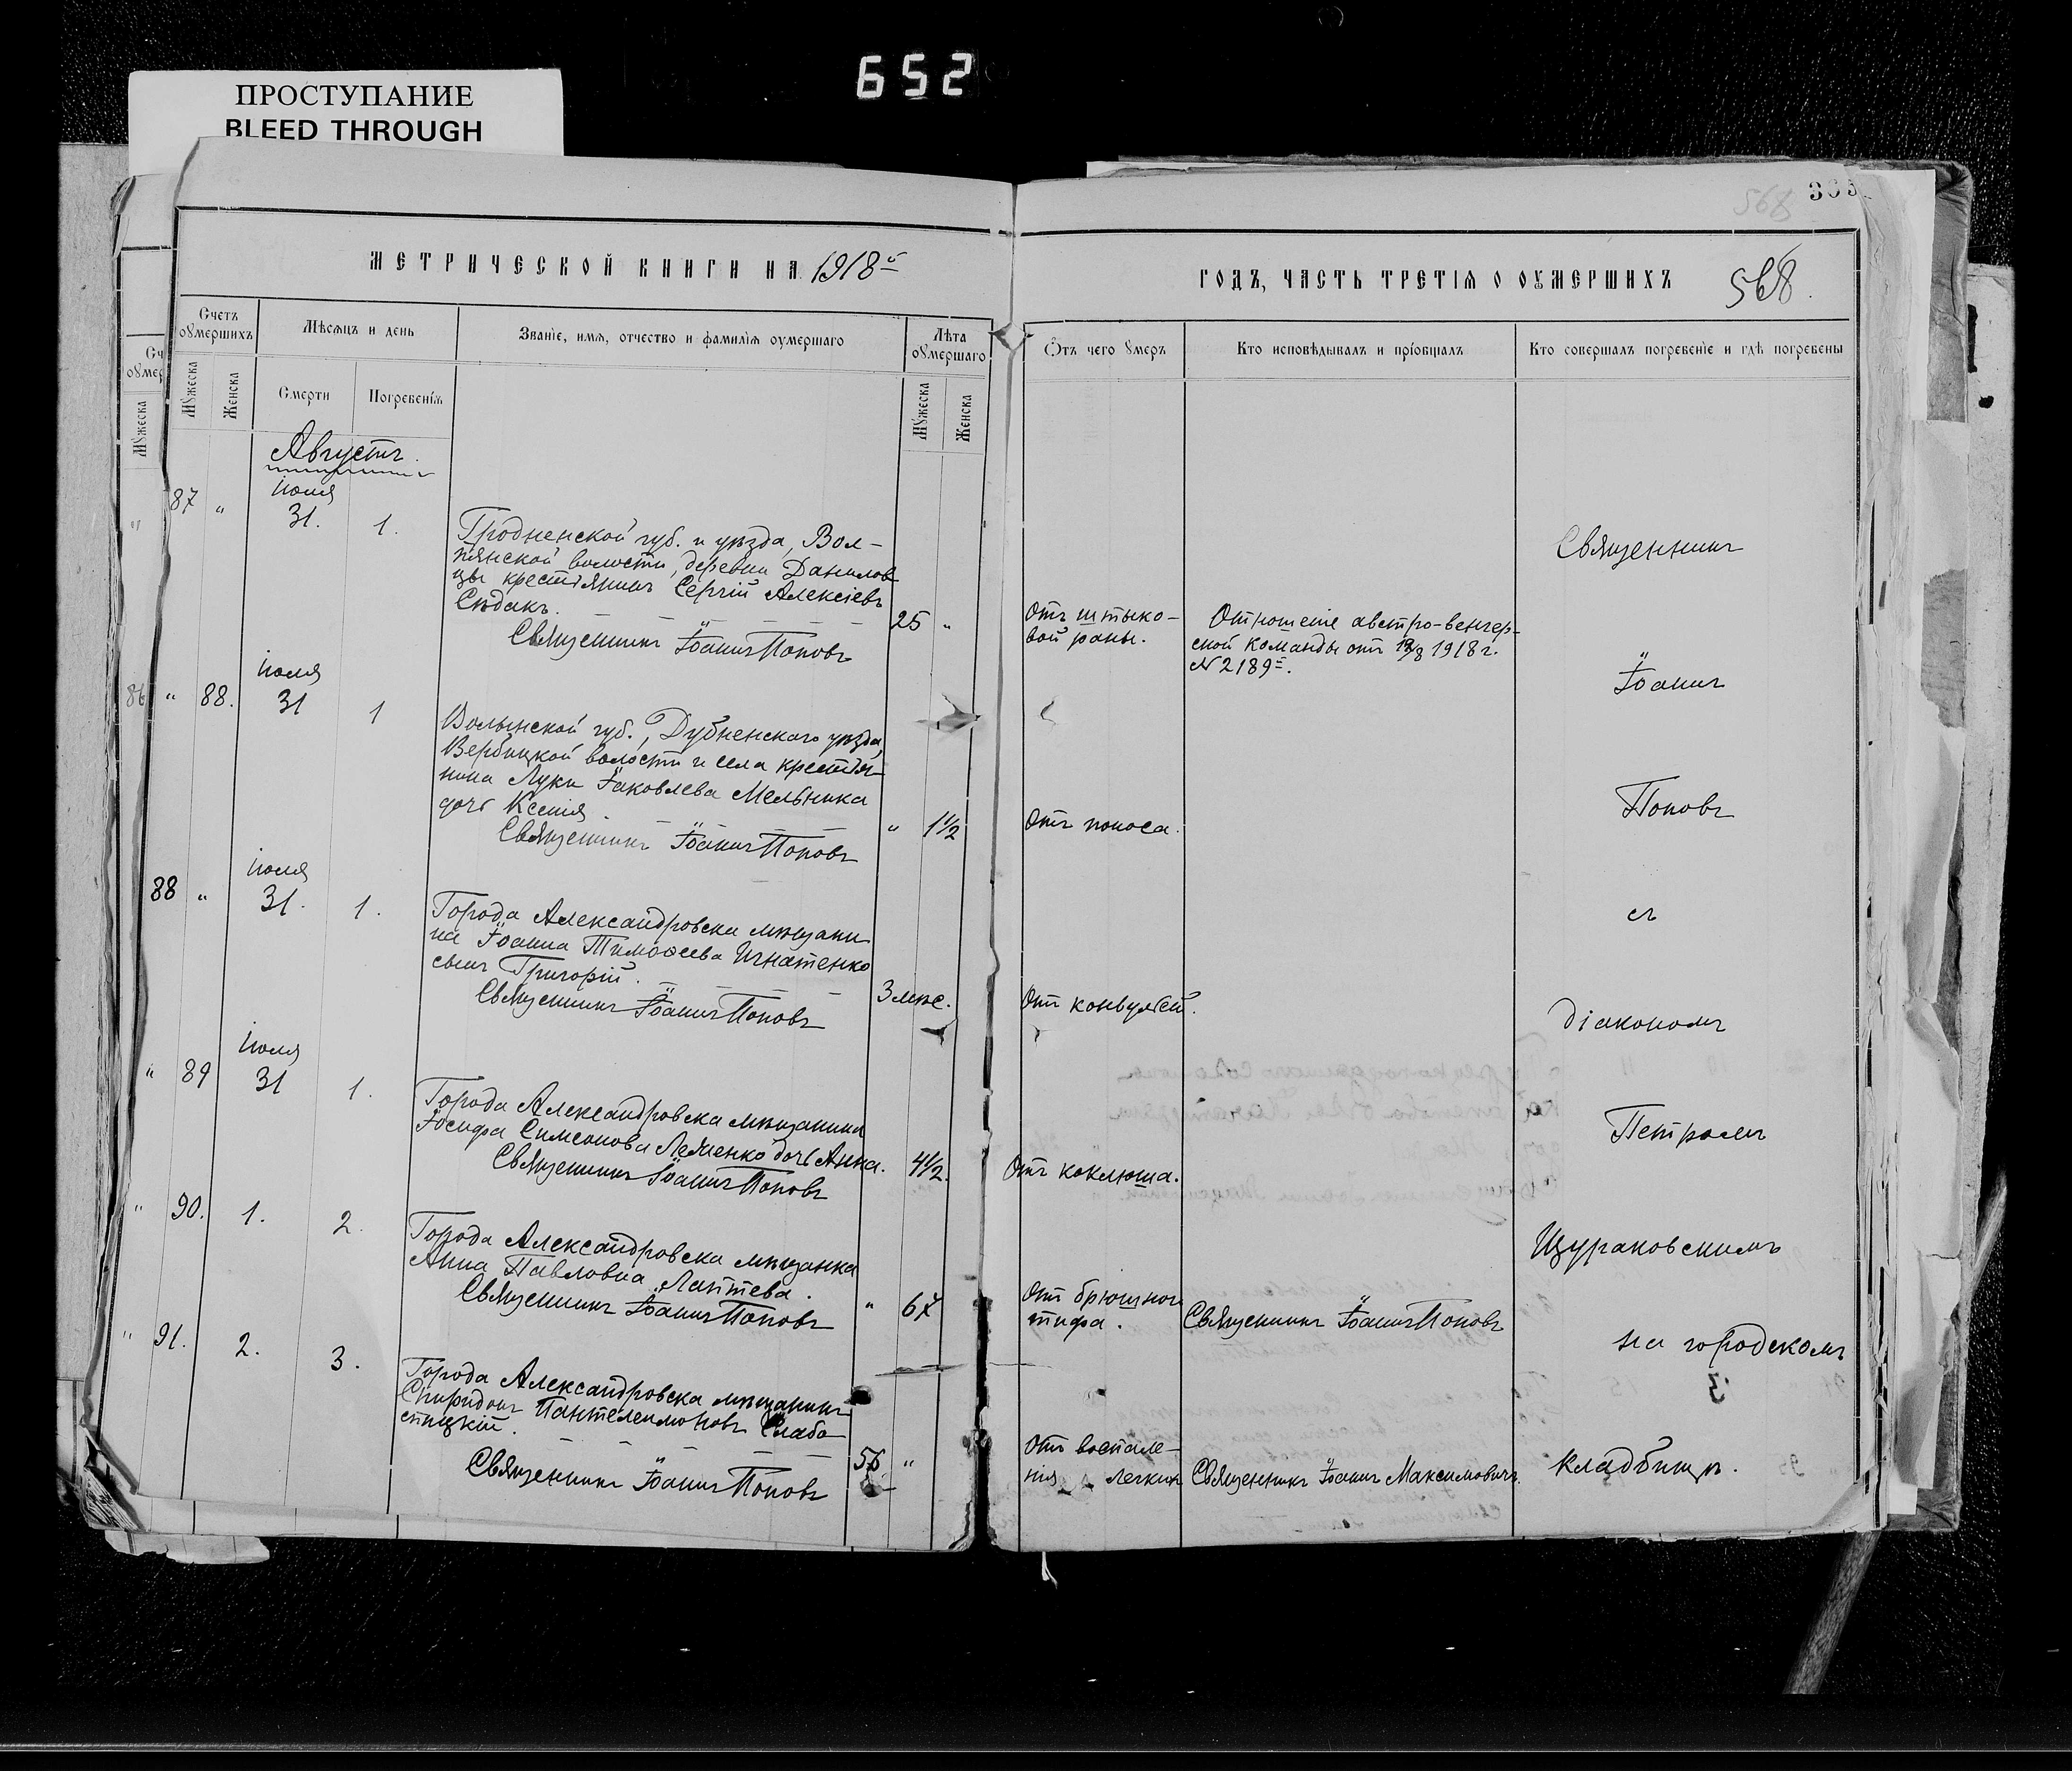 652
ПРОСТУПАНИЕ
BLEED THROUGH
365
568
МЕТРИЧЕСКОЙ КНИГИ НА 1918й
ГОДЪ, ЧАСТЬ ТРЕТІЯ О ОУМЕРШИХЪ
568.
Счетъ оумершихъ
Мѣсяцъ и день
Званіе, имя, отчество и фамилія оумершаго
Лѣта оумершаго
Отъ чего умеръ
Кто исповѣдывалъ и пріобщалъ
Кто совершалъ погребеніе и гдѣ погребены
Мужеска
Женска
Смерти
Погребенія
Мужеска
Женска
Августъ.
87 " іюля 31. 1.
Гродненской губ. и уѣзда, Вол-
пянской волости, деревни Данилов
цы крестіянинъ Сергій Алексіевъ
Сѣдакъ.
25 "
Священникъ Іоаннъ Поповъ
Отъ штыко-
вой раны.
Отношеніе австро-венгер-
ской команды отъ 12/8 1918 г.
№ 2189й.
" 88. іюля 31 1
Волынской губ., Дубненскаго уѣзда,
Вербицкой волости и села крестія-
нина Луки Іаковлева Мельника
дочь Ксенія.
" 1 1/2
Священникъ Іоаннъ Поповъ
Отъ поноса.
88 " іюля 31. 1.
Города Александровска мѣщани-
на Іоанна Тимоѳеева Игнатенко
сынъ Григорій.
3 мѣс.
Священникъ Іоаннъ Поповъ
Отъ конвульсій.
" 89 іюля 31 1.
Города Александровска мѣщанина
Іосифа Симеонова дочь Анна.
4 1/2.
Священникъ Іоаннъ Поповъ
Отъ коклюша.
" 90. 1. 2.
Города Александровска мѣщанка
Анна Павловна Лаптева.
" 67
Священникъ Іоаннъ Поповъ
Отъ брюшного
тифа.
Священникъ Іоаннъ Поповъ
" 91. 2. 3.
Города Александровска мѣщанинъ
Спиридонъ Пантелеимоновъ Слабо-
спицкій.
"
Священникъ Іоаннъ Поповъ
Отъ воспале-
нія легкихъ
Священникъ Іоаннъ Максимовичъ.
Священникъ
Іоаннъ
Поповъ
съ
діакономъ
Петромъ
Щураковскимъ
на городскомъ
кладбищѣ.